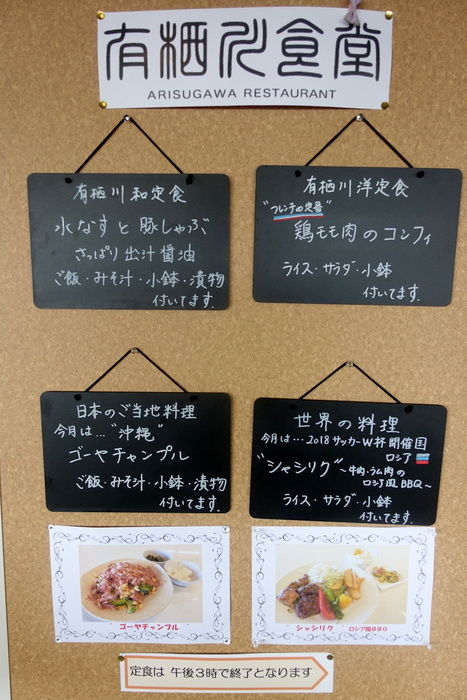 有栖川食堂
ARISUGAWA RESTAURANT
有栖川 和定食
水なすと豚しゃぶ
さっぱり出汁醤油
ご飯・みそ汁・小鉢・漬物
付いてます.
有栖川洋定食
"フレンチの定番"
鶏モモ肉のコンフィ
ライス・サラダ・小鉢
付いてます.
日本のご当地料理
今月は…"沖縄"
ゴーヤチャンプル
ご飯・みそ汁・小鉢・漬物
付いてます.
世界の料理
今月は…2018サッカーW杯開催国
ロシア
"シャシリク"～牛肉・ラム肉の
ロシア風BBQ～
ライス・サラダ・小鉢
付いてます.
ゴーヤチャンプル
シャシリク ロシア風BBQ
定食は 午後3時で終了となります